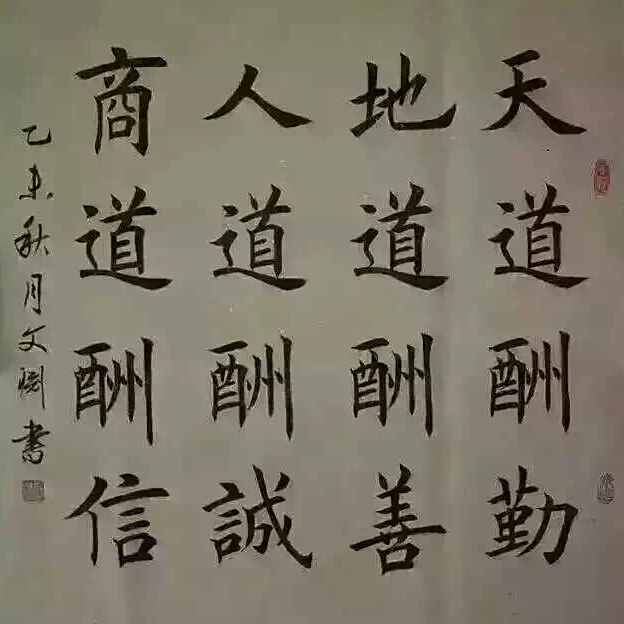 天道酬勤
地道酬善
人道酬誠
商道酬信
乙未秋月文渊書